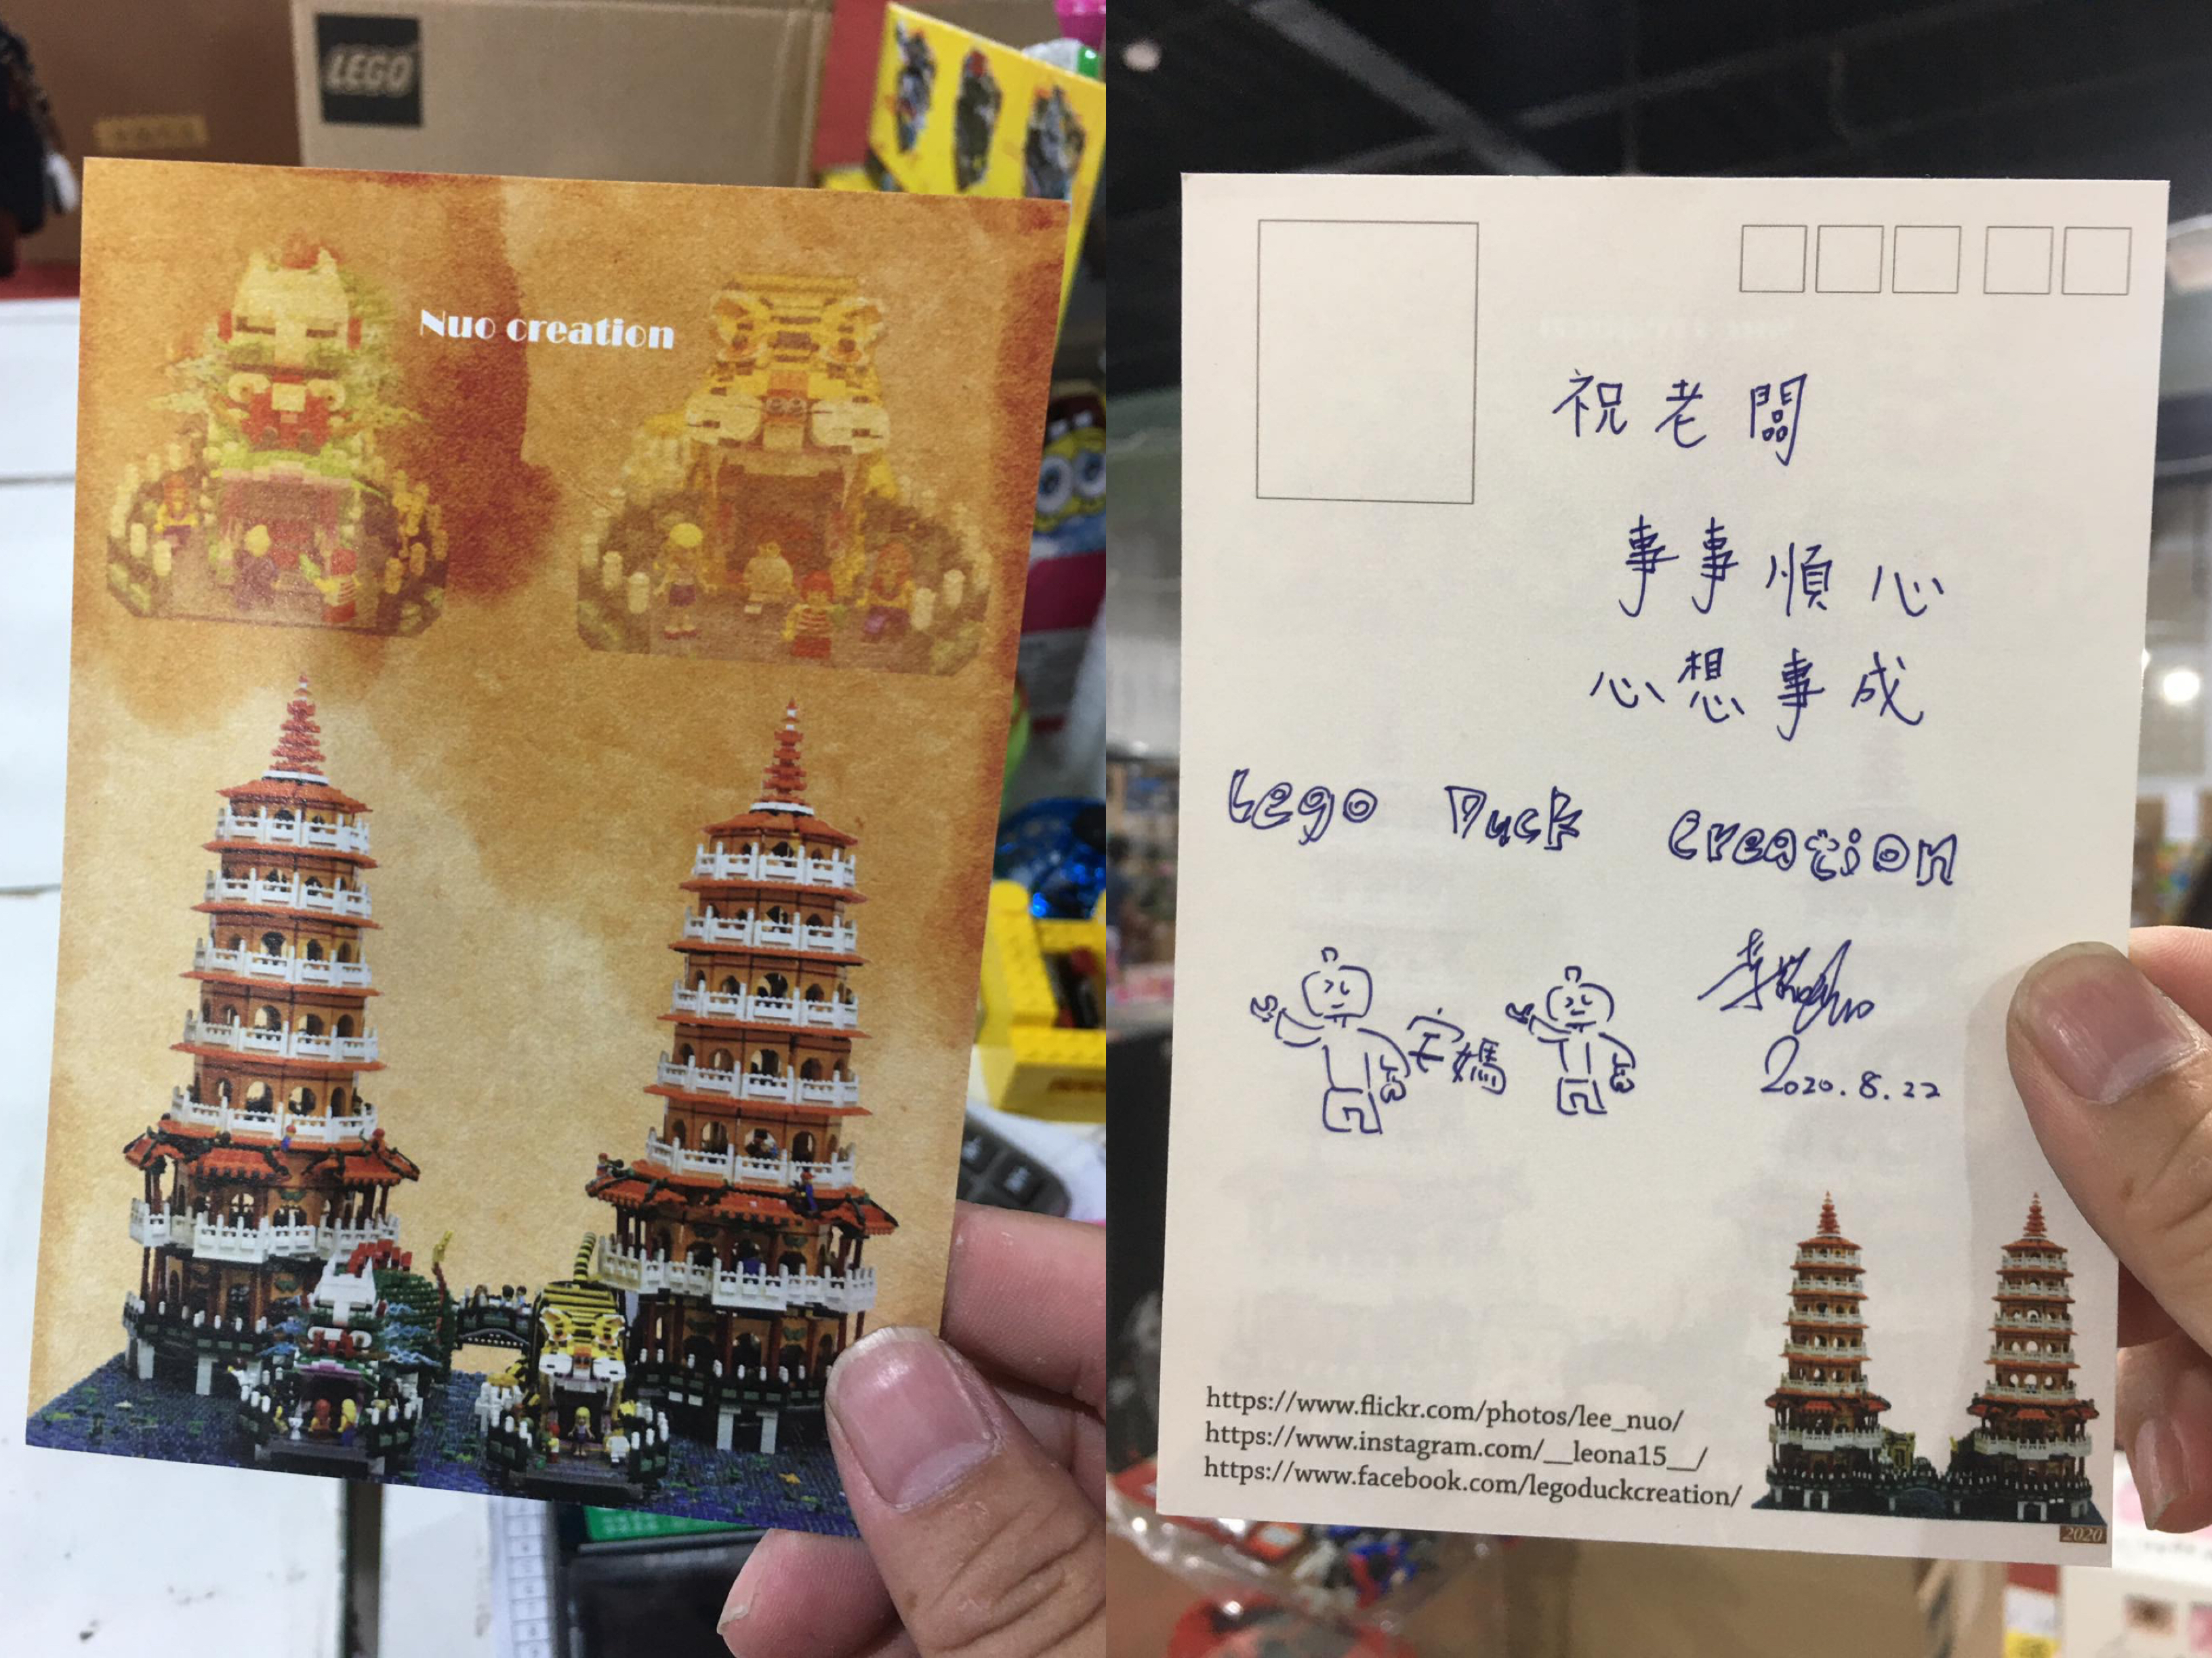 LEGO
Nuo creation
祝老闆
事事順心
心想事成
Lego Duck Creation
宅媽
2020.8.22
https://www.flickr.com/photos/lee_nuo/
https://www.instagram.com/__leona15__/
https://www.facebook.com/legoduckcreation/
2020